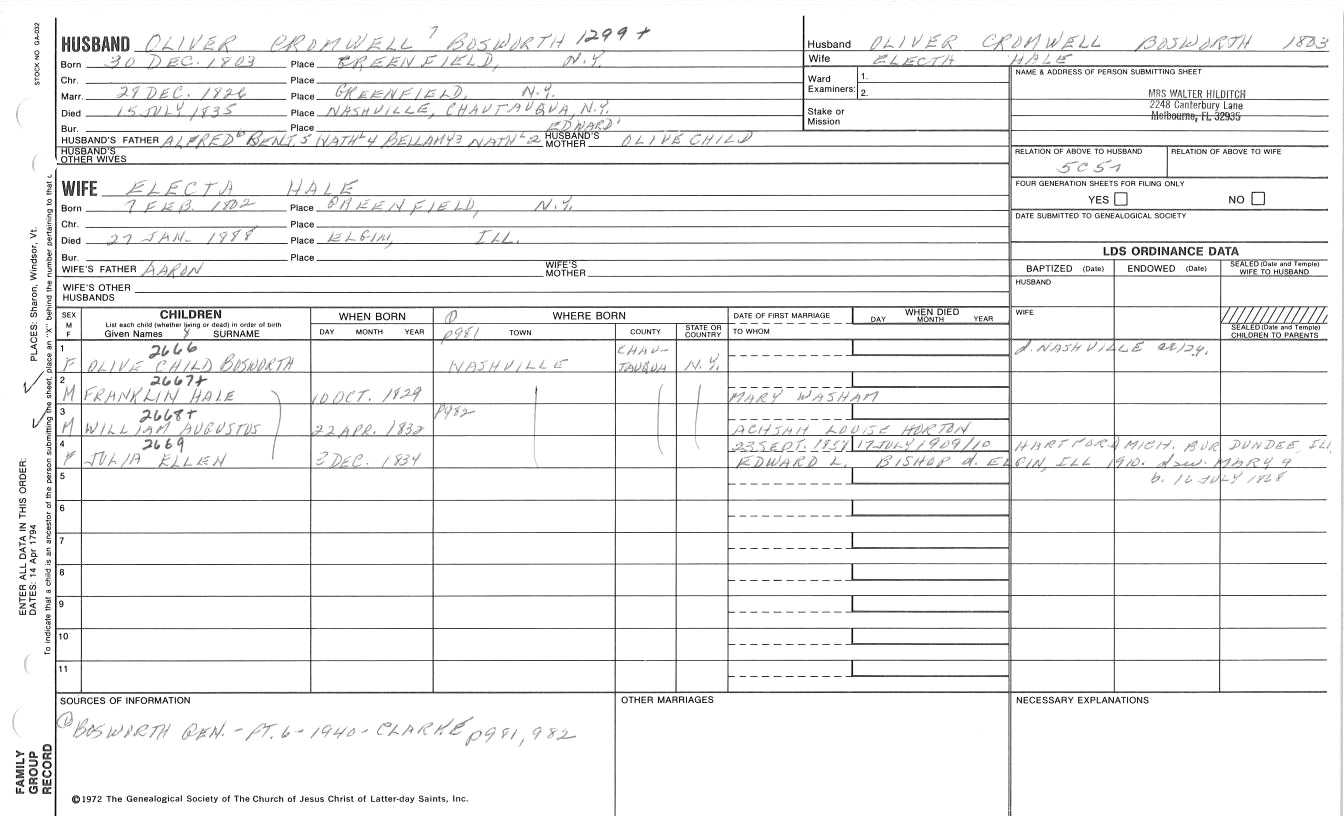 STOCK NO. GA-032
HUSBAND OLIVER CROMWELL 7 BOSWORTH 1299+
Born 30 DEC. 1803 Place GREENFIELD, N.Y.
Chr. Place
Marr. 29 DEC. 1826 Place GREENFIELD, N.Y.
Died 15 JULY 1835 Place NASHVILLE, CHAUTAUQUA, N.Y.
Bur. Place EDWARD 1
HUSBAND'S FATHER ALFRED 6 BENJ. 5 NATH'L 4 BELLAMY 3 NATH'L 2 HUSBAND'S MOTHER OLIVE CHILD
HUSBAND'S OTHER WIVES
Husband OLIVER CROMWELL BOSWORTH 1803
Wife ELECTA HALE
Ward Examiners: 1.
2.
Stake or Mission
NAME & ADDRESS OF PERSON SUBMITTING SHEET
MRS WALTER HILDITCH
2248 Canterbury Lane
Melbourne, FL 32935
RELATION OF ABOVE TO HUSBAND RELATION OF ABOVE TO WIFE
5C5
FOUR GENERATION SHEETS FOR FILING ONLY
YES NO
DATE SUBMITTED TO GENEALOGICAL SOCIETY
WIFE ELECTA HALE
Born 7 FEB. 1802 Place GREENFIELD, N.Y.
Chr. Place
Died 27 JAN. 1888 Place ELGIN, ILL.
Bur. Place
WIFE'S FATHER AARON WIFE'S MOTHER
WIFE'S OTHER HUSBANDS
LDS ORDINANCE DATA
BAPTIZED (Date) ENDOWED (Date) SEALED (Date and Temple) WIFE TO HUSBAND
HUSBAND
WIFE
SEALED (Date and Temple) CHILDREN TO PARENTS
SEX M F
CHILDREN
List each child (whether living or dead) in order of birth
Given Names 8 SURNAME
WHEN BORN
DAY MONTH YEAR
① WHERE BORN
p981 TOWN COUNTY STATE OR COUNTRY
DATE OF FIRST MARRIAGE
TO WHOM
WHEN DIED
DAY MONTH YEAR
1 2666
F OLIVE CHILD BOSWORTH NASHVILLE CHAUTAUQUA N.Y. d. NASHVILLE
2 2667+
M FRANKLIN HALE 10 OCT. 1829 MARY WASHAM
3 2668+ p982
M WILLIAM AUGUSTUS 22 APR. 1832 ACHSAH LOUISE HORTON
4 2669 23 SEPT. 17 JULY 1909/10 HARTFORD MICH. BUR DUNDEE, ILL
F JULIA ELLEN 3 DEC. 1834 EDWARD L. BISHOP d. ELGIN, ILL 1910.
b. 16 JULY 1828
5
6
7
8
9
10
11
SOURCES OF INFORMATION
① BOSWORTH GEN. - PT. 6 - 1940 - CLARKE p981, 982
OTHER MARRIAGES
NECESSARY EXPLANATIONS
©1972 The Genealogical Society of The Church of Jesus Christ of Latter-day Saints, Inc.
ENTER ALL DATA IN THIS ORDER:
DATES: 14 Apr 1794
PLACES: Sharon, Windsor, Vt.
To indicate that a child is an ancestor of the person submitting the sheet, place an "X" behind the number pertaining to that
FAMILY
GROUP
RECORD